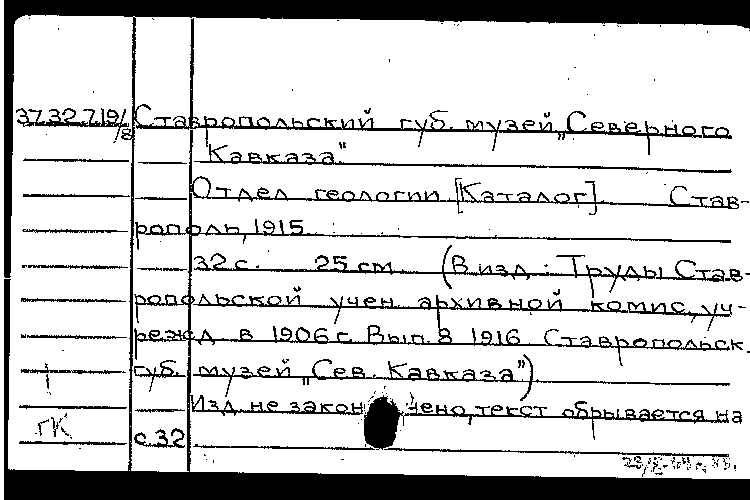 37 32 719/8 Ставропольский губ. музей „Северного
Кавказа".
Отдел геологии [Каталог]. Став-
рополь, 1915.
32 с. 25 см. (В изд.: Труды Став-
ропольской учен. архивной комис., уч-
режд. в 1906 г. Вып. 8 1916 Ставропольск.
губ. музей „Сев. Кавказа").
Изд. не закончено, текст обрывается на
гК с. 32